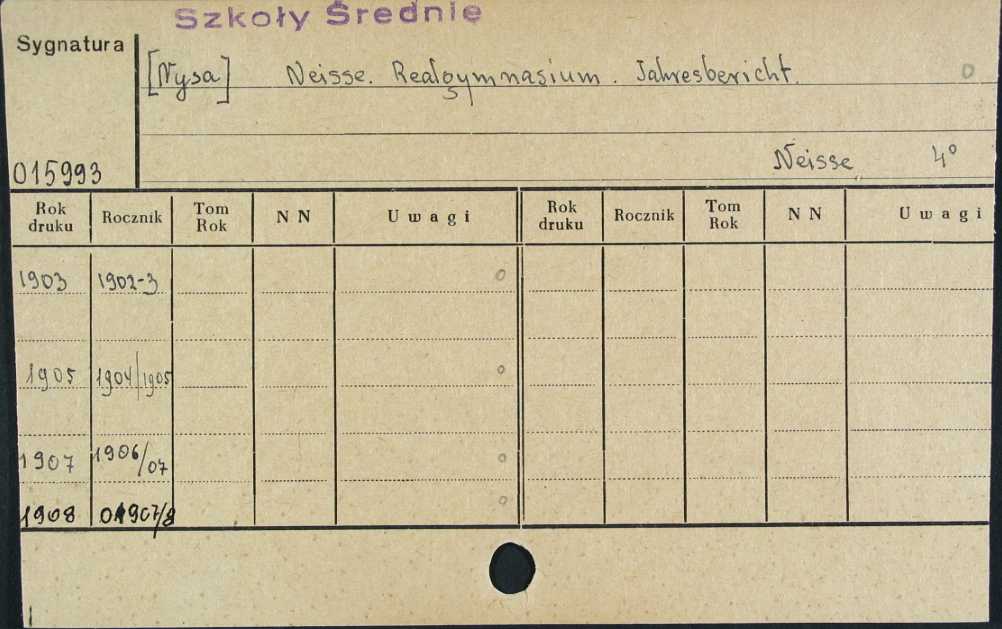 Szkoły Średnie
Sygnatura
[Nysa] Neisse. Realgymnasium. Jahresbericht. 0
Neisse 4°
015993
Rok druku Rocznik Tom Rok N N Uwagi Rok druku Rocznik Tom Rok N N Uwagi
1903 1902-3 0
1905 1904/1905 0
1907 1906/07 0
1908 1907/8 0